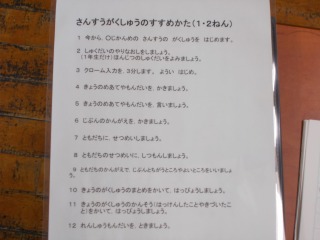 さんすうがくしゅうのすすめかた（1・2ねん）
1 今から 〇じかんめの さんすうの がくしゅうを はじめます。
2 しゅくだいのやりなおしをしましょう。
（1年生だけ）ほんじつのしゅくだいをよみましょう。
3 クローム入力を 3分します。 ようい はじめ。
4 きょうのめあてやもんだいを かきましょう。
5 きょうのめあてやもんだいを 言いましょう。
6 じぶんのかんがえを かきましょう。
7 ともだちに せつめいしましょう。
8 ともだちのせつめいに しつもんしましょう。
9 ともだちのかんがえで、じぶんとちがうところやよいところをいいましょう。
10 きょうのがくしゅうのまとめをかいて はっぴょうしましょう。
11 きょうのがくしゅうのかんそう（はっけんしたことやきづいたこと）をかいて はっぴょうしましょう。
12 れんしゅうもんだいを ときましょう。